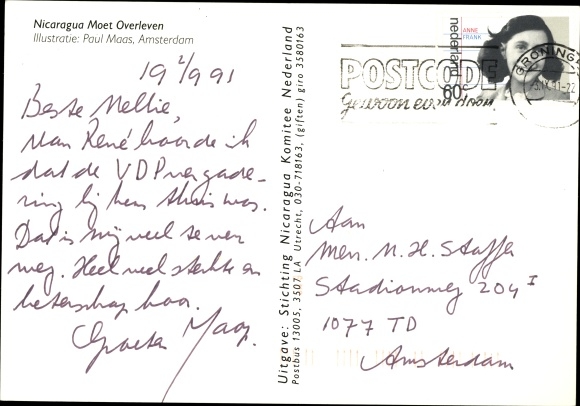 Nicaragua Moet Overleven
Illustratie: Paul Maas, Amsterdam
19 2/9 91
Beste Nellie,
Van René hoorde ik
dat de VDP vergade-
ring bij hem thuis was.
Dat is mij veel te ver
weg. Heel veel sterkte en
beterschap hoor.
Groeten
Uitgave: Stichting Nicaragua Komitee Nederland
Postbus 13005, 3507 LA Utrecht, 030-718163, (giften) giro 3580163
ANNE
FRANK
nederland
60c
POSTCODE
Gewoon even doen
GRONINGEN
Aan
Mev. N. H. Staffer
Stadionweg 204 I
1077 TD
Amsterdam